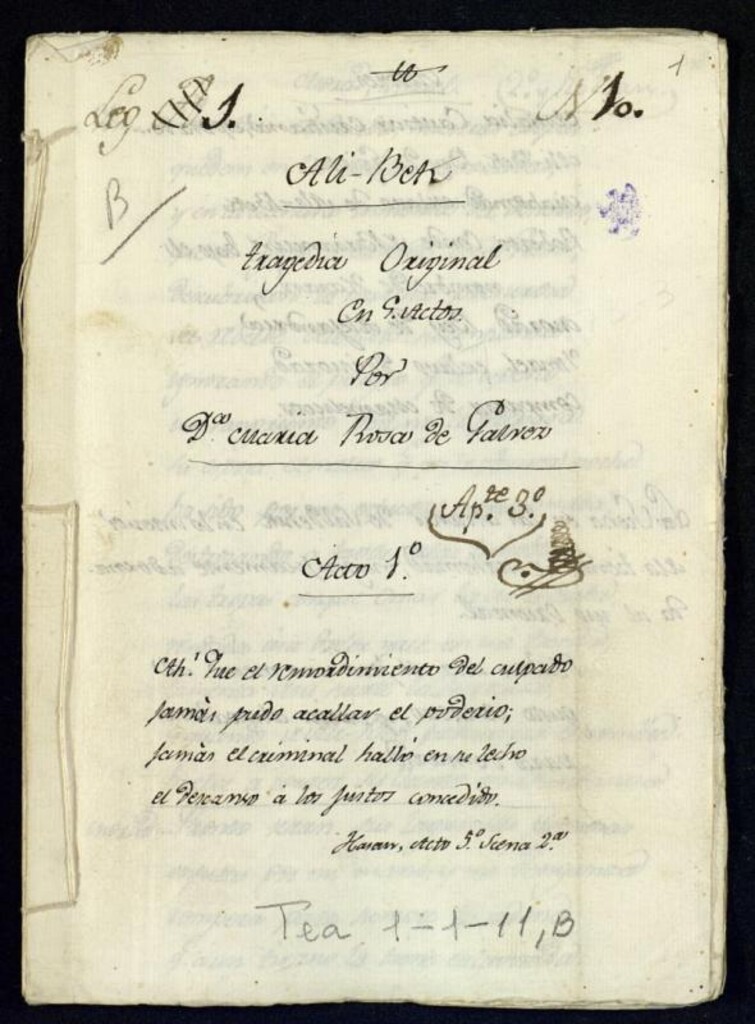 1
Leg XIII 1. N 10.
B
Ali-Bek
tragedia Original
En 5. Actos
Por
D.ª Maria Rosa de Galvez
Ap.te 3.º
Acto 1.º
Ah! Que el remordimiento del culpado
jamàs pudo acallar el poderio;
jamàs el criminal halló en su lecho
el descanso à los justos concedido.
Hasan, Acto 5.º Scena 2.ª
Tea 1-1-11, B